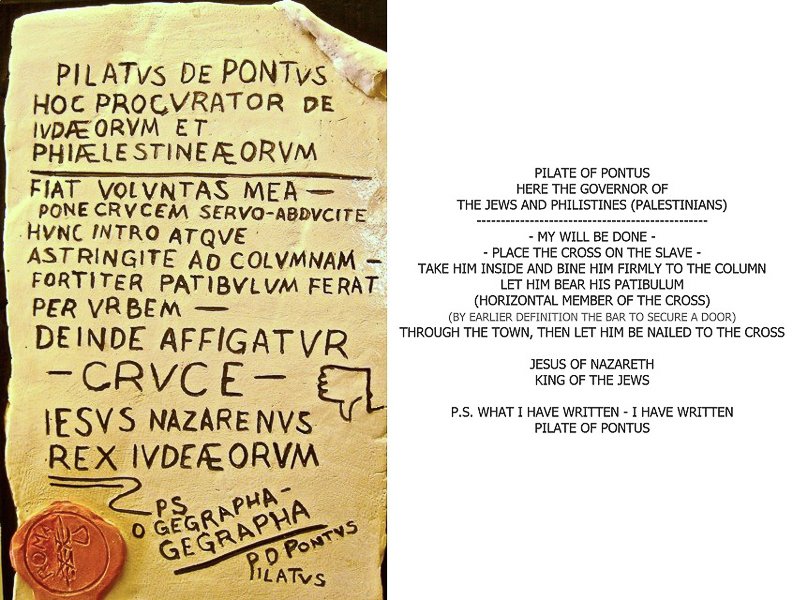 PILATVS DE PONTVS
HOC PROCVRATOR DE
IVDÆORVM ET
PHIÆLESTINEÆORVM
FIAT VOLVNTAS MEA —
PONE CRVCEM SERVO-ABDVCITE
HVNC INTRO ATQVE
ASTRINGITE AD COLVMNAM -
FORTITER PATIBVLVM FERAT
PER VRBEM —
DEINDE AFFIGATVR
- CRVCE -
IESVS NAZARENVS
REX IVDEÆORVM
PS
O GEGRAPHA-
GEGRAPHA
P D PONTVS
PILATVS
ROMA
PILATE OF PONTUS
HERE THE GOVERNOR OF
THE JEWS AND PHILISTINES (PALESTINIANS)
------------------------------------------------
- MY WILL BE DONE -
- PLACE THE CROSS ON THE SLAVE -
TAKE HIM INSIDE AND BINE HIM FIRMLY TO THE COLUMN
LET HIM BEAR HIS PATIBULUM
(HORIZONTAL MEMBER OF THE CROSS)
(BY EARLIER DEFINITION THE BAR TO SECURE A DOOR)
THROUGH THE TOWN, THEN LET HIM BE NAILED TO THE CROSS
JESUS OF NAZARETH
KING OF THE JEWS
P.S. WHAT I HAVE WRITTEN - I HAVE WRITTEN
PILATE OF PONTUS